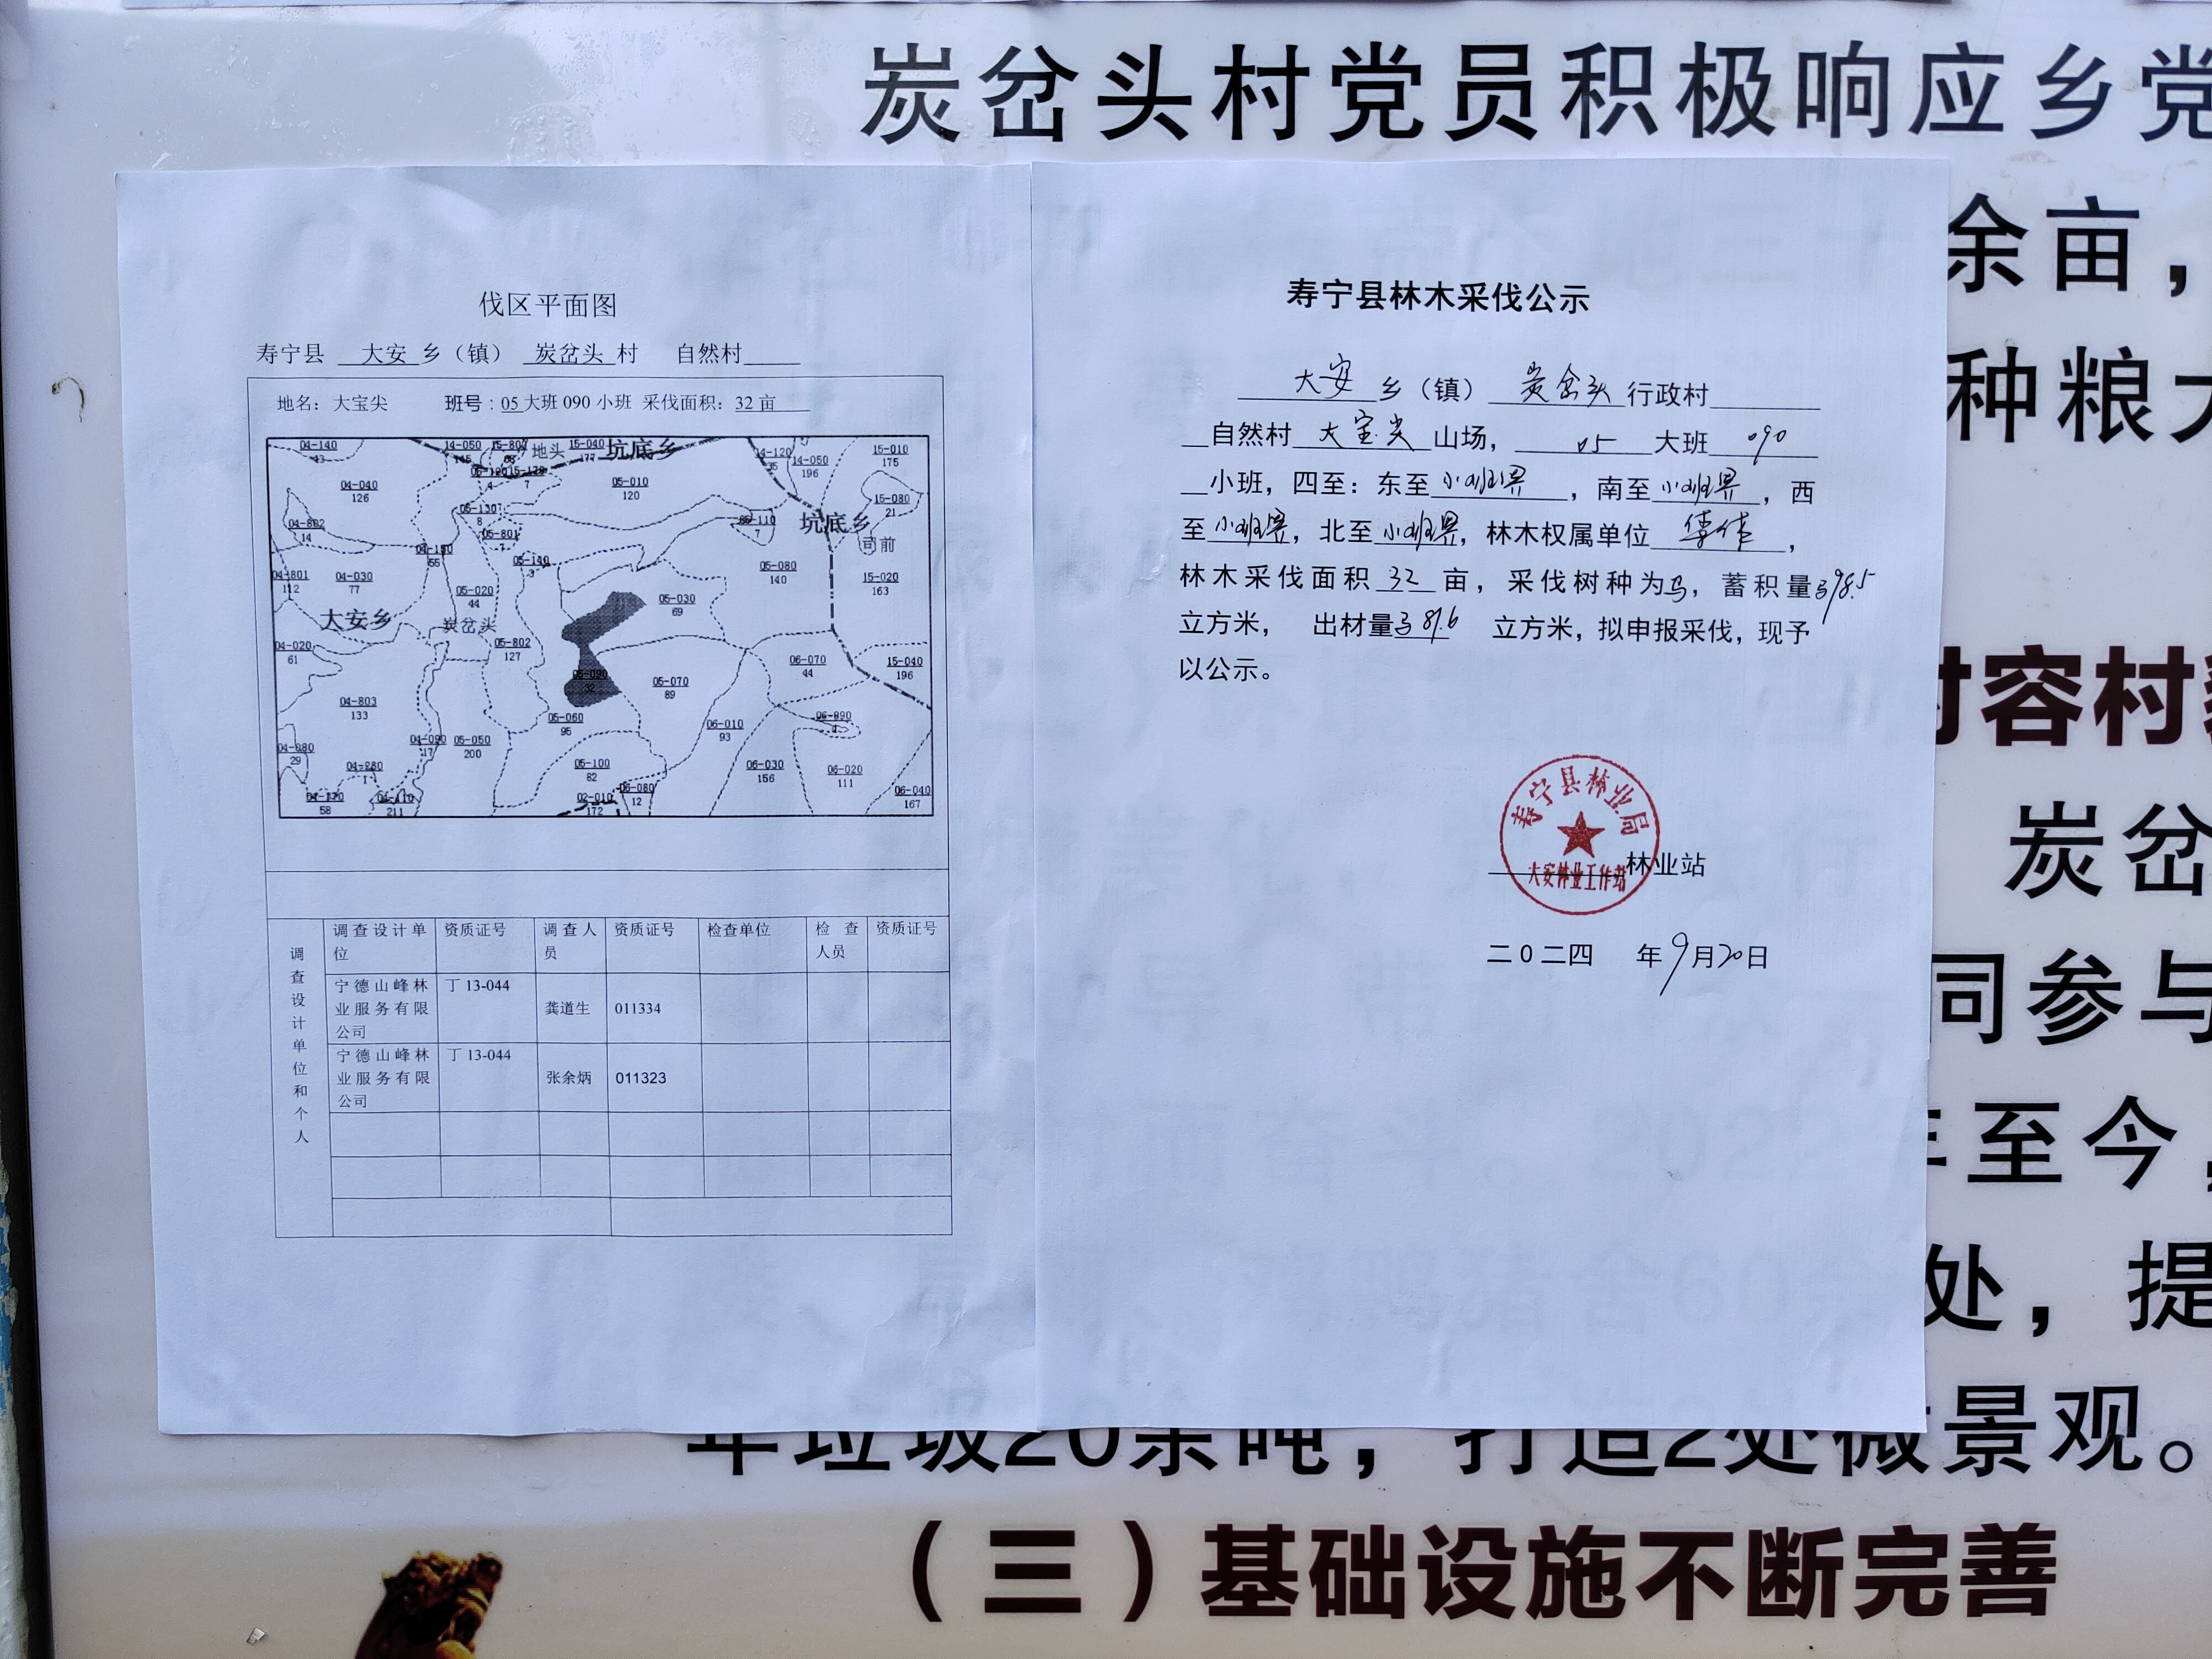 炭岔头村党员积极响应乡党
余亩，
种粮大
村容村
炭岔
同参与
年至今，
处，提
年垃圾20余吨，打造2处微景观。
（三）基础设施不断完善
伐区平面图
寿宁县 大安 乡（镇） 炭岔头 村 自然村
地名：大宝尖 班号：05大班 090 小班 采伐面积：32 亩
04-140
43
14-050
145
15-040
177
坑底乡
地头
14-120
35
14-050
196
15-010
175
04-040
126
05-010
120
15-080
21
04-802
14
05-130
8
05-801
7
05-110
7
坑底乡
司前
05-140
3
04-801
112
04-030
77
05-020
44
05-080
140
15-020
163
大安乡
炭岔头
05-030
69
04-020
61
05-802
127
06-070
44
15-040
196
05-090
32
05-070
89
04-803
133
05-060
95
06-010
93
04-080
29
04-090
17
05-050
200
05-100
82
06-030
156
06-020
111
58
211
02-010
172
06-080
12
06-040
167
调查设计单位和个人
调查设计单位 资质证号 调查人员 资质证号 检查单位 检查人员 资质证号
宁德山峰林业服务有限公司 丁 13-044 龚道生 011334
宁德山峰林业服务有限公司 丁 13-044 张余炳 011323
寿宁县林木采伐公示
大安 乡（镇） 炭岔头 行政村
自然村 大宝尖 山场， 05 大班 090
小班，四至：东至 小班界 ，南至 小班界 ，西
至 小班界，北至 小班界，林木权属单位 ，
林木采伐面积 32 亩，采伐树种为马，蓄积量398.5
立方米， 出材量 立方米，拟申报采伐，现予
以公示。
寿宁县林业局
大安林业工作站
林业站
二0二四 年9月20日